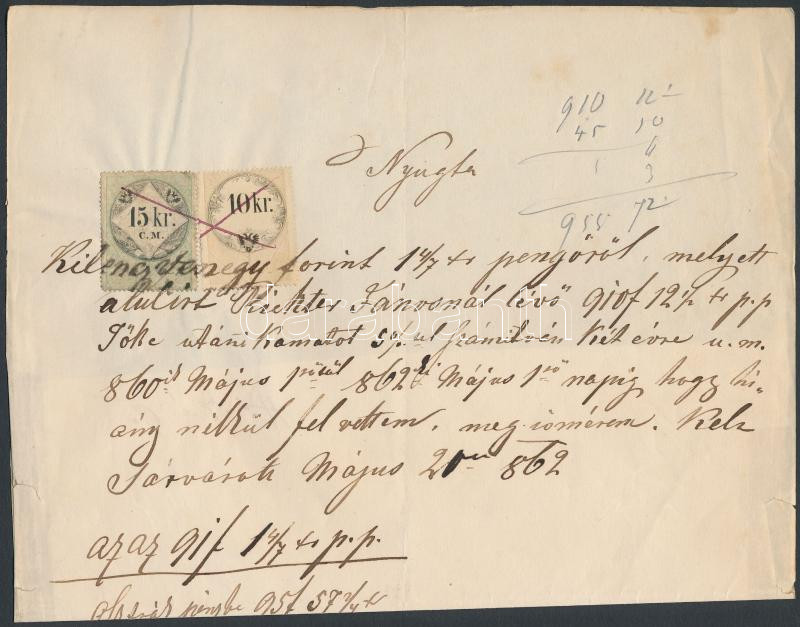 910 12 1/2
45 10
1 4
3
955 72
Nyugta
15 kr.
C.M.
10 kr.
Kilenczvenegy forint 1 4/7 xr pengőről, melyett
alulirt János­nál lévő 910f 12 1/2 xr p.p
Tőke utáni Kamatot 5%-ul számitván Két évre u.m.
860ik Május 1ső­től 862iki Május 1ső napig hogy hi=
ány nélkül felvettem, meg ismérem. Kelt
Sárvárott Május 21én 862
azaz 91f 1 4/7 xr p.p.
pénzbe 95f 57 2/4 xr
darabanth